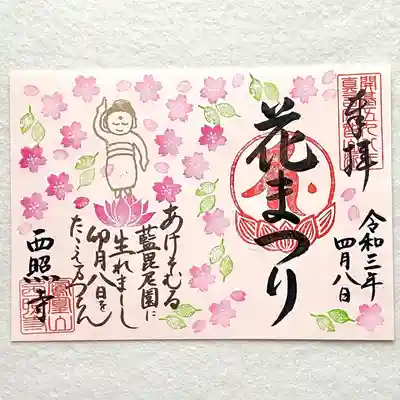 奉拝
令和三年
四月八日
花まつり
あけそむる
藍毘尼園に
生れまし
卯月八日を
たゝえまつらん
西照寺